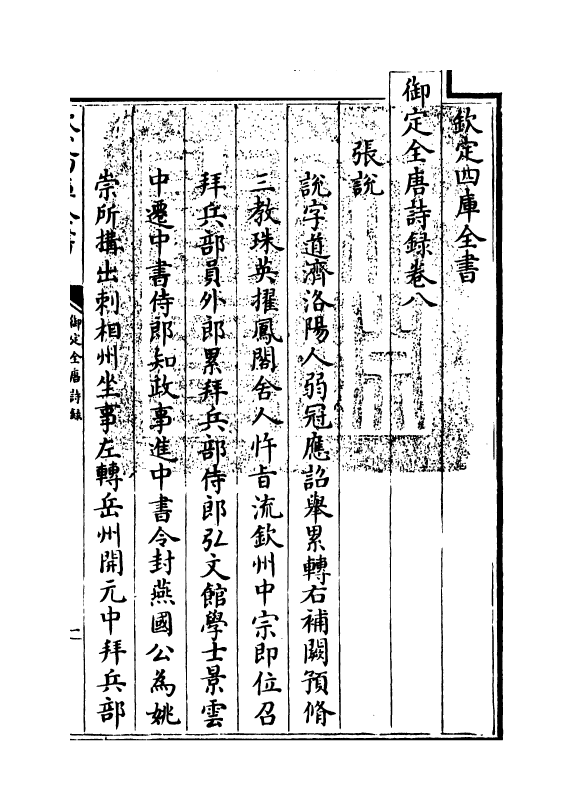 欽定四庫全書
御定全唐詩錄卷八
張說
說字道濟洛陽人弱冠應詔舉累轉右補闕預脩
三教珠英擢鳳閣舍人忤旨流欽州中宗即位召
拜兵部員外郎累拜兵部侍郎弘文館學士景雲
中遷中書侍郎知政事進中書令封燕國公為姚
崇所搆出刺相州坐事左轉岳州開元中拜兵部
御定全唐詩錄